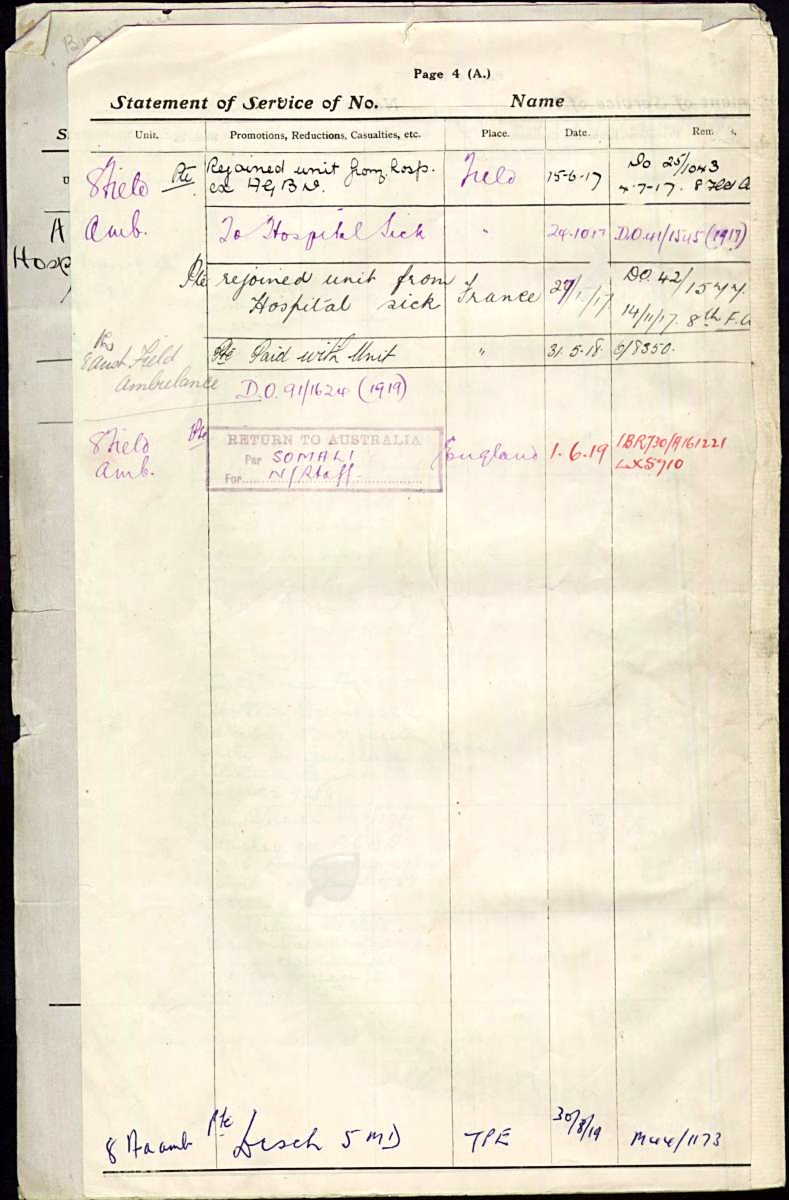 Page 4 (A.)
Statement of Service of No. Name
Unit. Promotions, Reductions, Casualties, etc. Place. Date. Rem s,
8 Field Pte Rejoined unit from hosp. Field 15-6-17 DO 25/1043
4-7-17. 8 Fld A
Amb. To Hospital Sick " 24.10.17 D.O.41/1545 (1917)
Pte rejoined unit from France 17 D.O. 42/1577.
Hospital sick 14/11/17. 8th F.A
8 Aust Field Pte Paid with Unit " 31.5.18. 8350.
Ambulance D.O. 91/1624 (1919)
8 Field Pte RETURN TO AUSTRALIA England 1.6.19 1BR/30/A161221
Amb. Per SOMALI
For N/Staff
8 Fd amb Pte Disch 5 MD TPE 30/8/19 M44/1173
A
Hosp